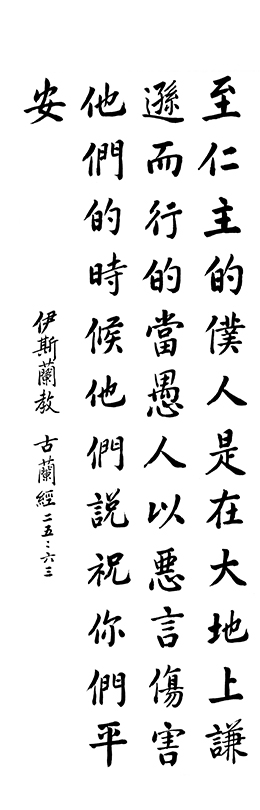 至仁主的僕人是在大地上謙
遜而行的當愚人以惡言傷害
他們的時候他們說祝你們平
安
伊斯蘭教 古蘭經二五:六三